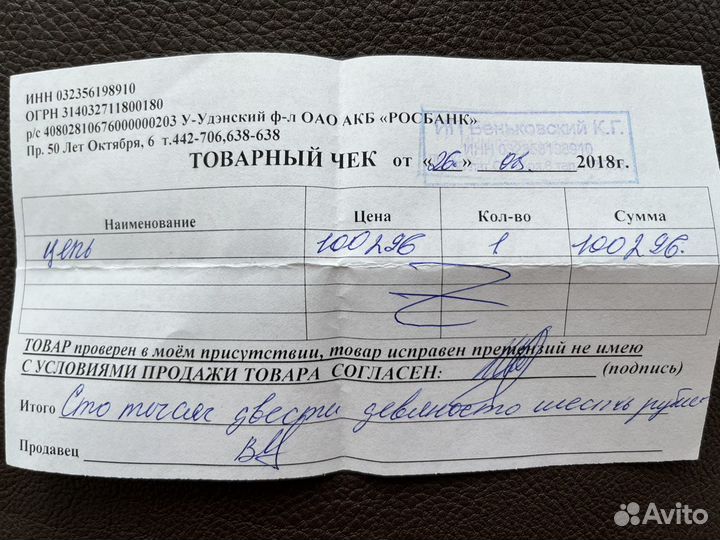 ИНН 032356198910
ОГРН 314032711800180
р/с 40802810676000000203 У-Удэнский ф-л ОАО АКБ «РОСБАНК»
Пр. 50 Лет Октября, 6 т.442-706,638-638
ИП Беньковский К.Г.
ИНН 032356198910
ТОВАРНЫЙ ЧЕК от «26» 03. 2018г.
Наименование Цена Кол-во Сумма
цепь 100296 1 100296.
ТОВАР проверен в моём присутствии, товар исправен претензий не имею
С УСЛОВИЯМИ ПРОДАЖИ ТОВАРА СОГЛАСЕН: (подпись)
Итого Сто тысяч двести девяносто шесть рублей
Продавец
Avito